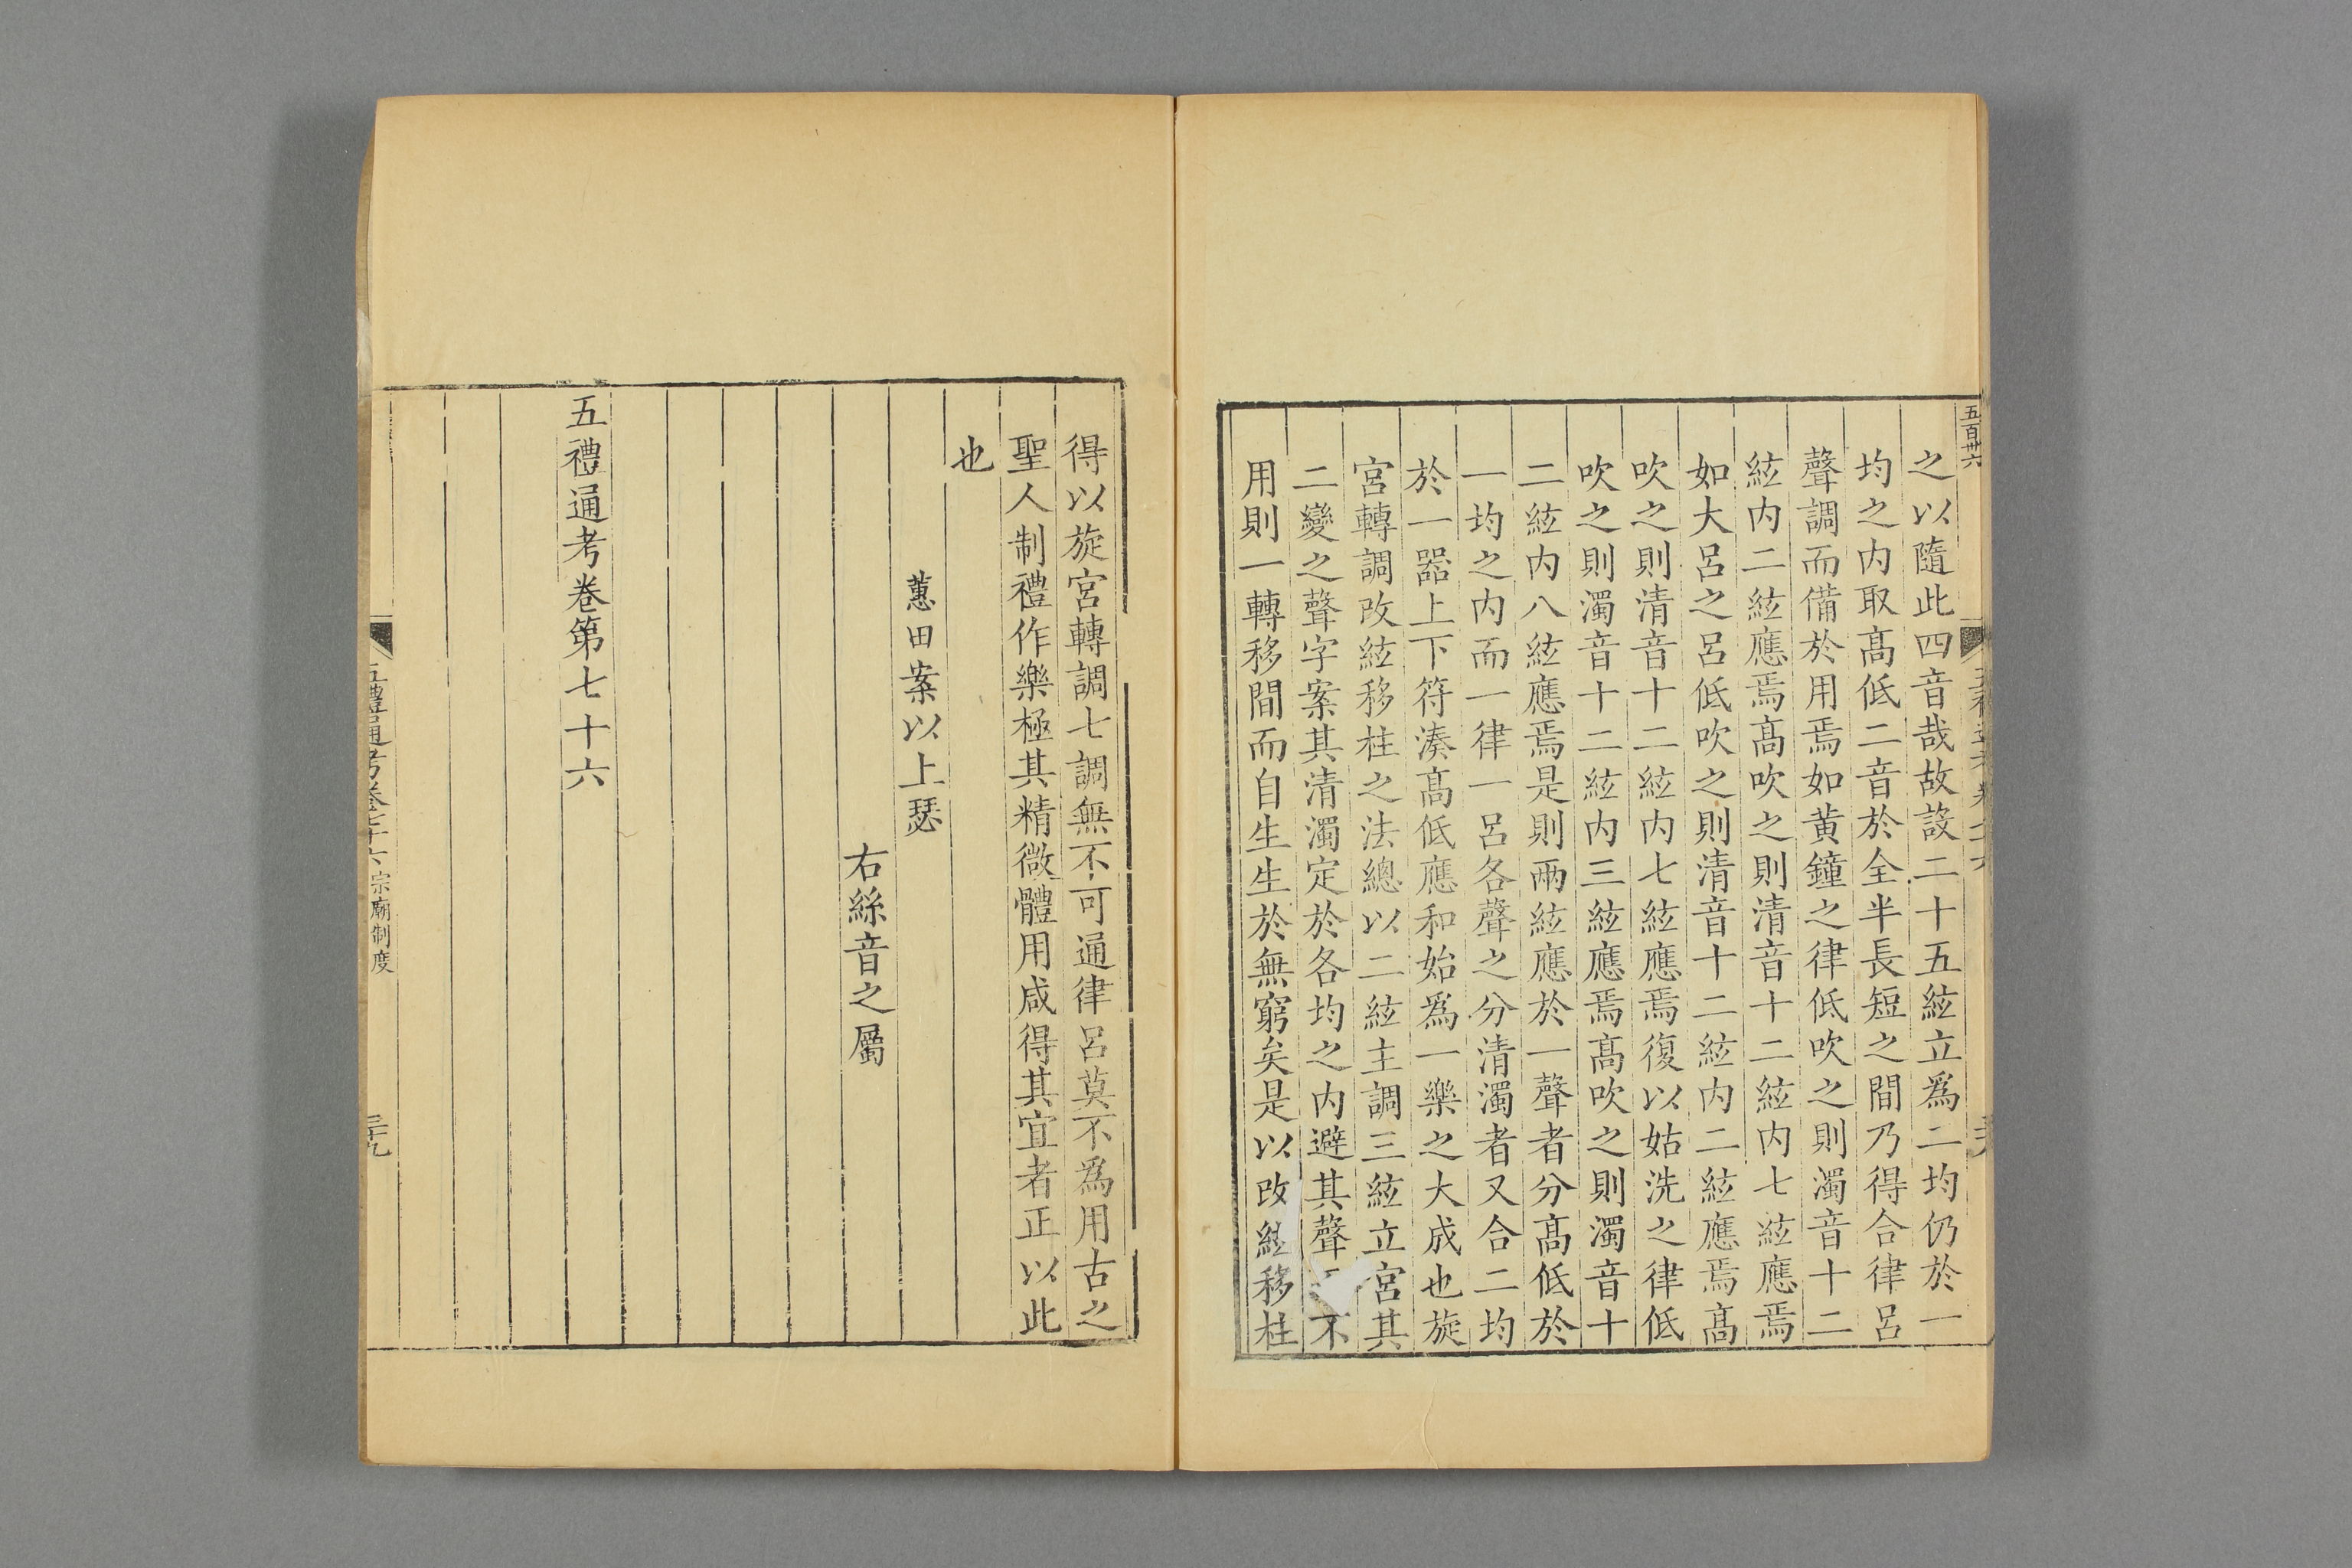 五百卅六
之以隨此四音哉故設二十五絃立爲二均仍於一
均之内取髙低二音於全半長短之間乃得合律呂
聲調而備於用焉如黄鐘之律低吹之則濁音十二
絃内二絃應焉髙吹之則清音十二絃内七絃應焉
如大呂之呂低吹之則清音十二絃内二絃應焉髙
吹之則清音十二絃内七絃應焉復以姑洗之律低
吹之則濁音十二絃内三絃應焉髙吹之則濁音十
二絃内八絃應焉是則兩絃應於一聲者分髙低於
一均之内而一律一呂各聲之分清濁者又合二均
於一器上下符湊髙低應和始爲一樂之大成也旋
宮轉調改絃移柱之法總以二絃主調三絃立宮其
二變之聲字案其清濁定於各均之内避其聲不
用則一轉移間而自生生於無窮矣是以改絃移柱
得以旋宮轉調七調無不可通律呂莫不爲用古之
聖人制禮作樂極其精微體用咸得其宜者正以此
也
蕙田案以上瑟
右絲音之屬
五禮通考卷第七十六
五禮通考卷七十六宗廟制度
三十九